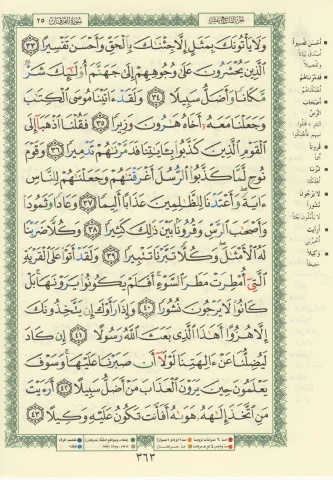 سورة الفرقان ٢٥
الجزء التاسع عشر
وَلَا يَأْتُونَكَ بِمَثَلٍ إِلَّا جِئْنَٰكَ بِٱلْحَقِّ وَأَحْسَنَ تَفْسِيرًا ٣٣
ٱلَّذِينَ يُحْشَرُونَ عَلَىٰ وُجُوهِهِمْ إِلَىٰ جَهَنَّمَ أُو۟لَٰٓئِكَ شَرٌّ
مَّكَانًا وَأَضَلُّ سَبِيلًا ٣٤ وَلَقَدْ ءَاتَيْنَا مُوسَى ٱلْكِتَٰبَ
وَجَعَلْنَا مَعَهُۥٓ أَخَاهُ هَٰرُونَ وَزِيرًا ٣٥ فَقُلْنَا ٱذْهَبَآ إِلَى
ٱلْقَوْمِ ٱلَّذِينَ كَذَّبُوا۟ بِـَٔايَٰتِنَا فَدَمَّرْنَٰهُمْ تَدْمِيرًا ٣٦ وَقَوْمَ
نُوحٍ لَّمَّا كَذَّبُوا۟ ٱلرُّسُلَ أَغْرَقْنَٰهُمْ وَجَعَلْنَٰهُمْ لِلنَّاسِ
ءَايَةً وَأَعْتَدْنَا لِلظَّٰلِمِينَ عَذَابًا أَلِيمًا ٣٧ وَعَادًا وَثَمُودَا۟
وَأَصْحَٰبَ ٱلرَّسِّ وَقُرُونًۢا بَيْنَ ذَٰلِكَ كَثِيرًا ٣٨ وَكُلًّا ضَرَبْنَا
لَهُ ٱلْأَمْثَٰلَ وَكُلًّا تَبَّرْنَا تَتْبِيرًا ٣٩ وَلَقَدْ أَتَوْا۟ عَلَى ٱلْقَرْيَةِ
ٱلَّتِىٓ أُمْطِرَتْ مَطَرَ ٱلسَّوْءِ أَفَلَمْ يَكُونُوا۟ يَرَوْنَهَا بَلْ
كَانُوا۟ لَا يَرْجُونَ نُشُورًا ٤٠ وَإِذَا رَأَوْكَ إِن يَتَّخِذُونَكَ
إِلَّا هُزُوًا أَهَٰذَا ٱلَّذِى بَعَثَ ٱللَّهُ رَسُولًا ٤١ إِن كَادَ
لَيُضِلُّنَا عَنْ ءَالِهَتِنَا لَوْلَآ أَن صَبَرْنَا عَلَيْهَا وَسَوْفَ
يَعْلَمُونَ حِينَ يَرَوْنَ ٱلْعَذَابَ مَنْ أَضَلُّ سَبِيلًا ٤٢ أَرَءَيْتَ
مَنِ ٱتَّخَذَ إِلَٰهَهُۥ هَوَىٰهُ أَفَأَنتَ تَكُونُ عَلَيْهِ وَكِيلًا ٤٣
أحسن تفسيراً
فدمرناهم
أصحاب
الرس
قرونا
تبرنا
لا يرجون
نشورا
أرأيت
وكيلا
حفيظاً
٣٦٣